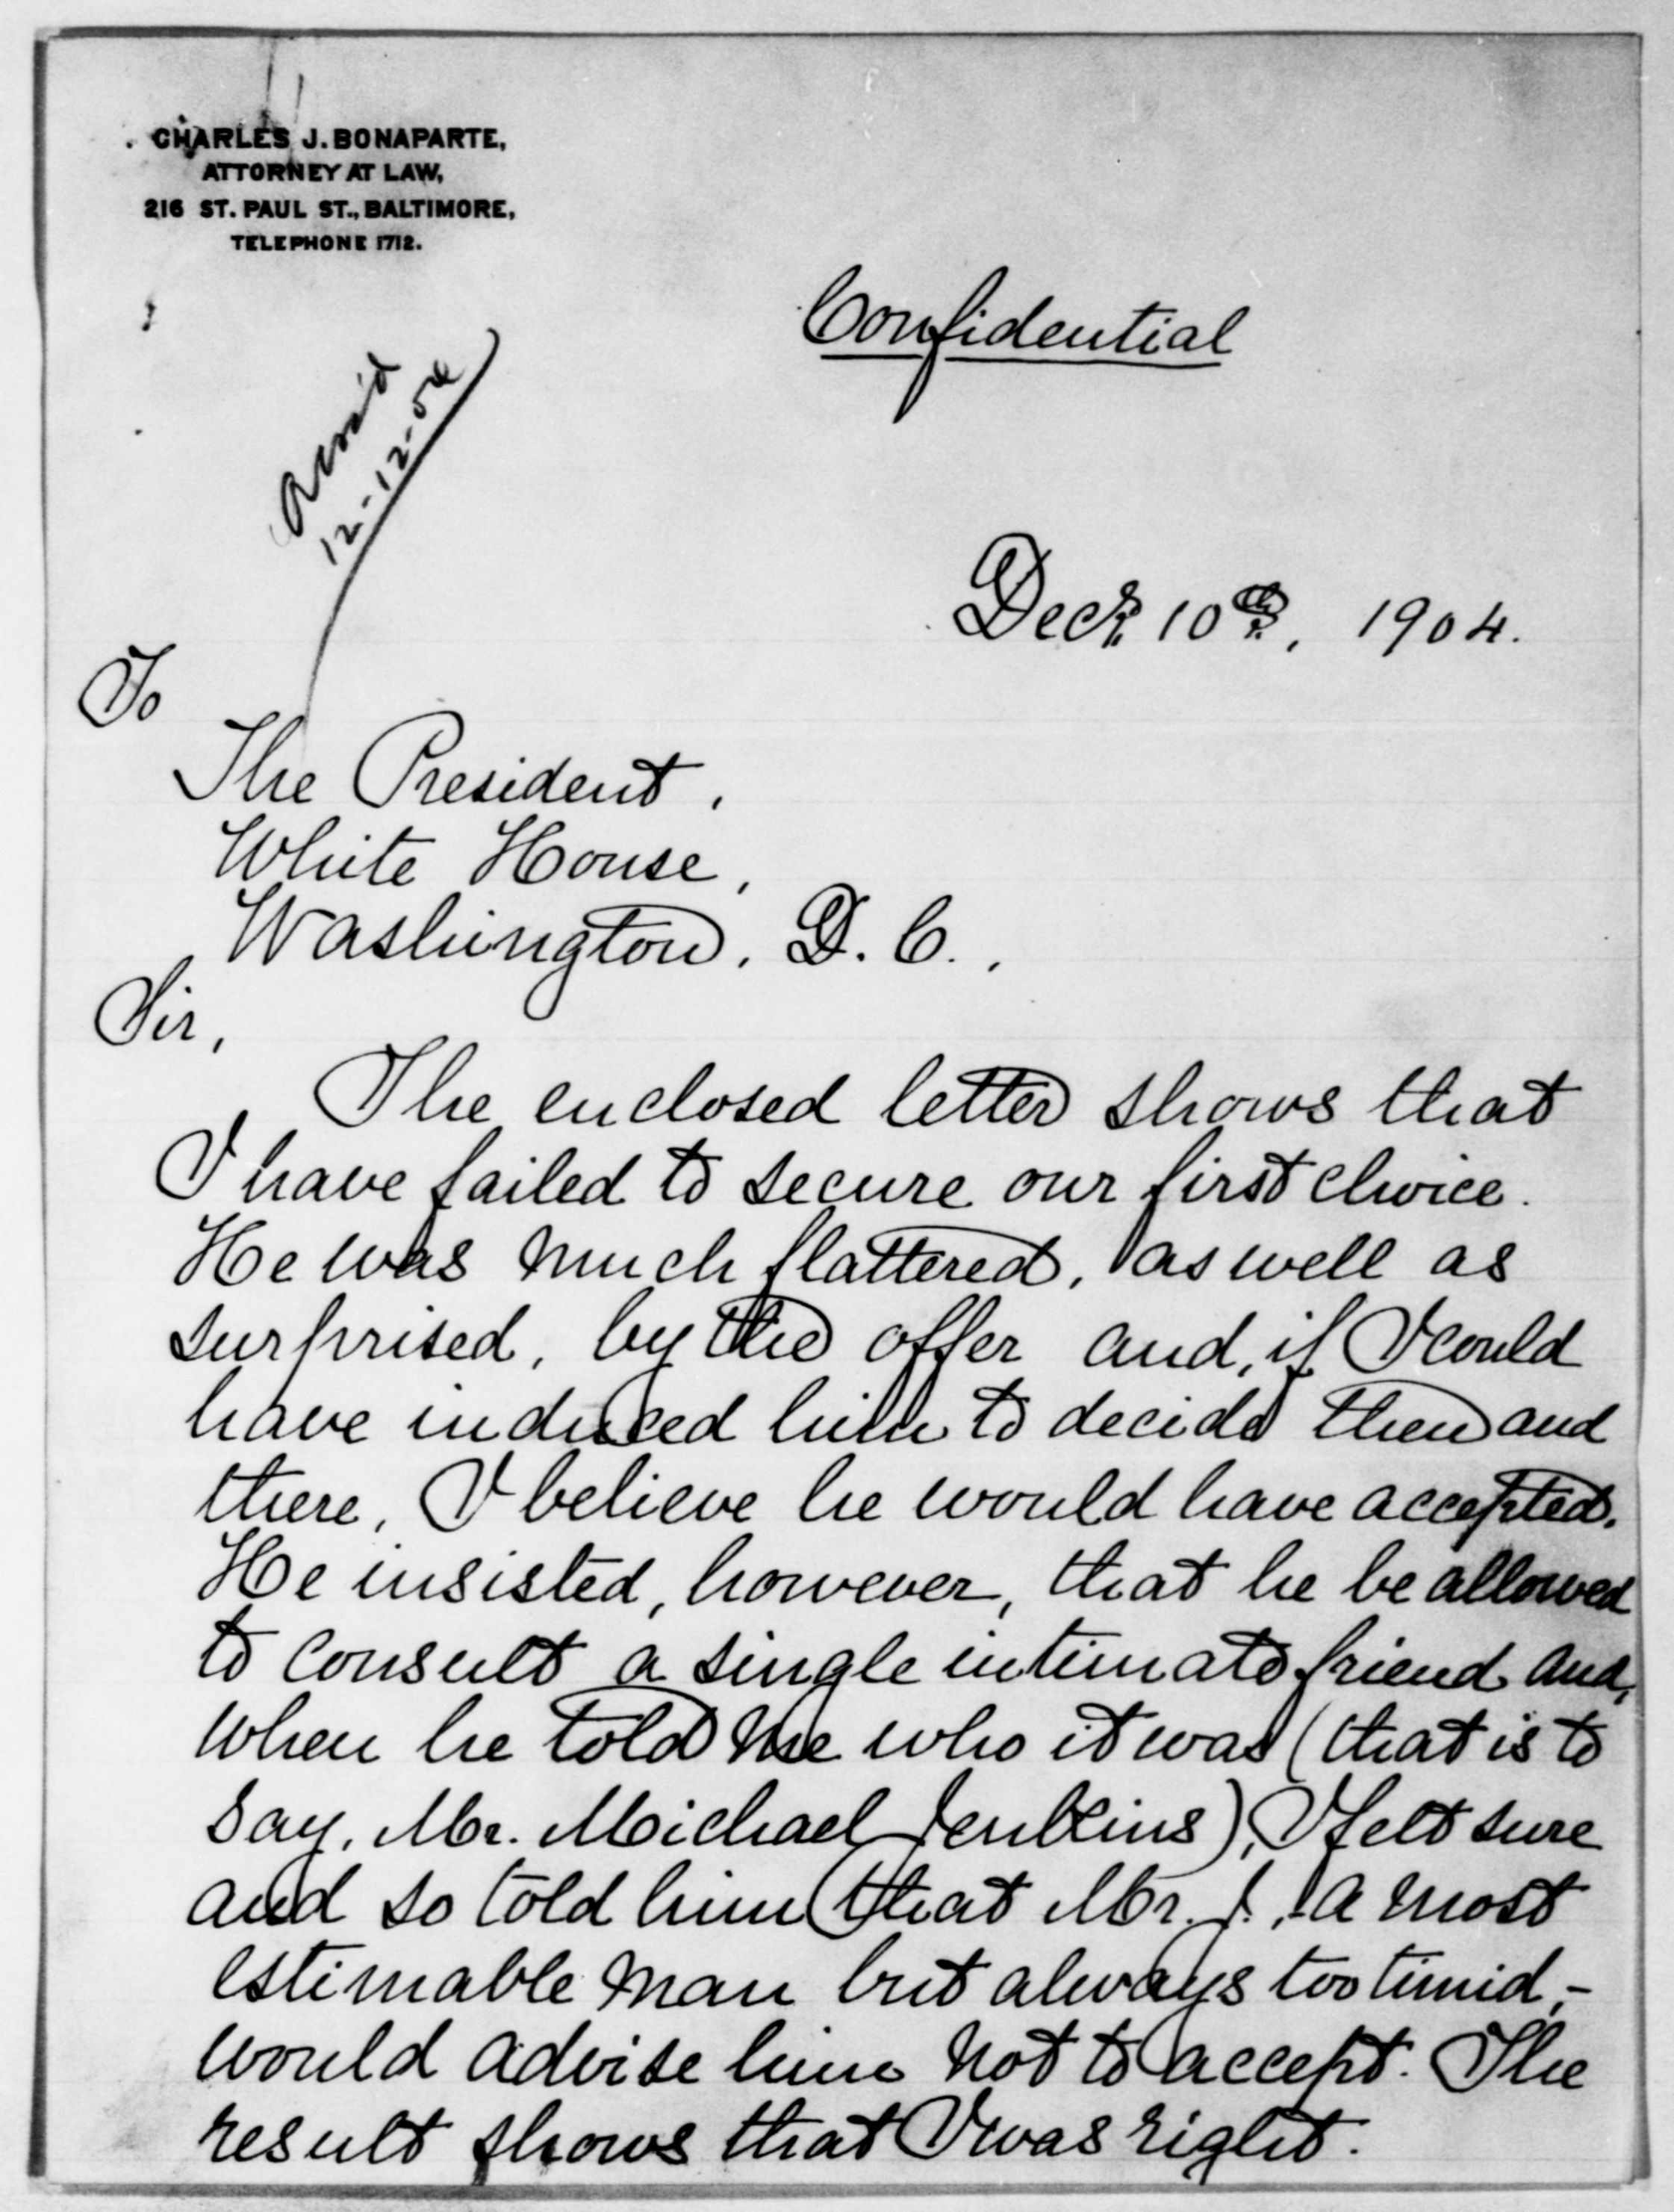 CHARLES J. BONAPARTE,
ATTORNEY AT LAW,
216 ST. PAUL ST., BALTIMORE,
TELEPHONE 1712.
Confidential
Ack'd
12-12-04
Decr. 10th, 1904.
To
The President,
White House,
Washington, D. C.,
Sir,
The enclosed letter shows that
I have failed to secure our first choice.
He was much flattered, as well as
surprised, by the offer and, if I could
have induced him to decide then and
there, I believe he would have accepted.
He insisted, however, that he be allowed
to consult a single intimate friend and,
when he told me who it was (that is to
say, Mr. Michael Jenkins), I felt sure
and so told him that Mr. J., - a most
estimable man but always too timid, -
would advise him not to accept. The
result shows that I was right.